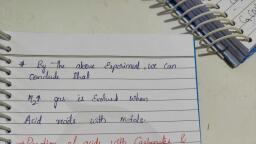 * By the above Experiment, we can
conclude that
H2↑ gas is Evolved when
Acid reacts with metals.
* Reaction of acids with Carbonates &